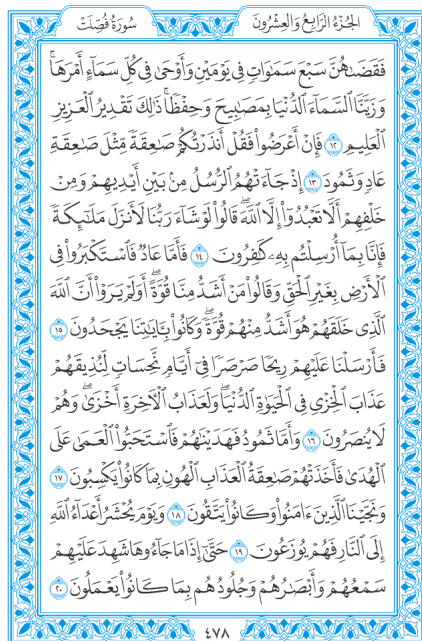 الجُزْءُ الرَّابِعُ وَالعِشْرُونَ سُورَةُ فُصِّلَتْ
فَقَضَىٰهُنَّ سَبْعَ سَمَٰوَاتٖ فِي يَوۡمَيۡنِ وَأَوۡحَىٰ فِي كُلِّ سَمَآءٍ أَمۡرَهَاۚ
وَزَيَّنَّا ٱلسَّمَآءَ ٱلدُّنۡيَا بِمَصَٰبِيحَ وَحِفۡظٗاۚ ذَٰلِكَ تَقۡدِيرُ ٱلۡعَزِيزِ
ٱلۡعَلِيمِ ١٢ فَإِنۡ أَعۡرَضُواْ فَقُلۡ أَنذَرۡتُكُمۡ صَٰعِقَةٗ مِّثۡلَ صَٰعِقَةِ
عَادٖ وَثَمُودَ ١٣ إِذۡ جَآءَتۡهُمُ ٱلرُّسُلُ مِنۢ بَيۡنِ أَيۡدِيهِمۡ وَمِنۡ
خَلۡفِهِمۡ أَلَّا تَعۡبُدُوٓاْ إِلَّا ٱللَّهَۖ قَالُواْ لَوۡ شَآءَ رَبُّنَا لَأَنزَلَ مَلَٰٓئِكَةٗ
فَإِنَّا بِمَآ أُرۡسِلۡتُم بِهِۦ كَٰفِرُونَ ١٤ فَأَمَّا عَادٞ فَٱسۡتَكۡبَرُواْ فِي
ٱلۡأَرۡضِ بِغَيۡرِ ٱلۡحَقِّ وَقَالُواْ مَنۡ أَشَدُّ مِنَّا قُوَّةًۖ أَوَلَمۡ يَرَوۡاْ أَنَّ ٱللَّهَ
ٱلَّذِي خَلَقَهُمۡ هُوَ أَشَدُّ مِنۡهُمۡ قُوَّةٗۖ وَكَانُواْ بِـَٔايَٰتِنَا يَجۡحَدُونَ ١٥
فَأَرۡسَلۡنَا عَلَيۡهِمۡ رِيحٗا صَرۡصَرٗا فِيٓ أَيَّامٖ نَّحِسَاتٖ لِّنُذِيقَهُمۡ
عَذَابَ ٱلۡخِزۡيِ فِي ٱلۡحَيَوٰةِ ٱلدُّنۡيَاۖ وَلَعَذَابُ ٱلۡأٓخِرَةِ أَخۡزَىٰۖ وَهُمۡ
لَا يُنصَرُونَ ١٦ وَأَمَّا ثَمُودُ فَهَدَيۡنَٰهُمۡ فَٱسۡتَحَبُّواْ ٱلۡعَمَىٰ عَلَى
ٱلۡهُدَىٰ فَأَخَذَتۡهُمۡ صَٰعِقَةُ ٱلۡعَذَابِ ٱلۡهُونِ بِمَا كَانُواْ يَكۡسِبُونَ ١٧
وَنَجَّيۡنَا ٱلَّذِينَ ءَامَنُواْ وَكَانُواْ يَتَّقُونَ ١٨ وَيَوۡمَ يُحۡشَرُ أَعۡدَآءُ ٱللَّهِ
إِلَى ٱلنَّارِ فَهُمۡ يُوزَعُونَ ١٩ حَتَّىٰٓ إِذَا مَا جَآءُوهَا شَهِدَ عَلَيۡهِمۡ
سَمۡعُهُمۡ وَأَبۡصَٰرُهُمۡ وَجُلُودُهُم بِمَا كَانُواْ يَعۡمَلُونَ ٢٠
٤٧٨